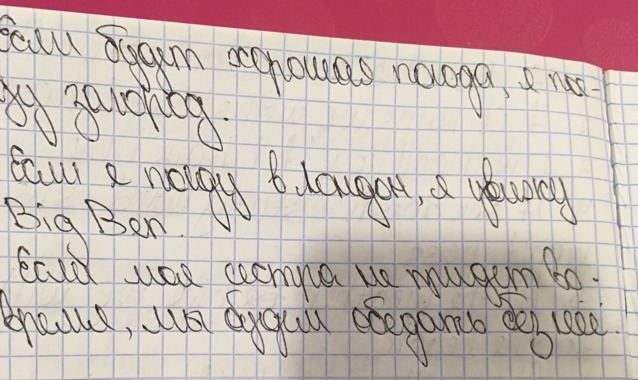 Если будет хорошая погода, я пое-
ду загород.
Если я поеду в Лондон, я увижу
Big Ben.
Если моя сестра не придет во-
время, мы будем обедать без неё.